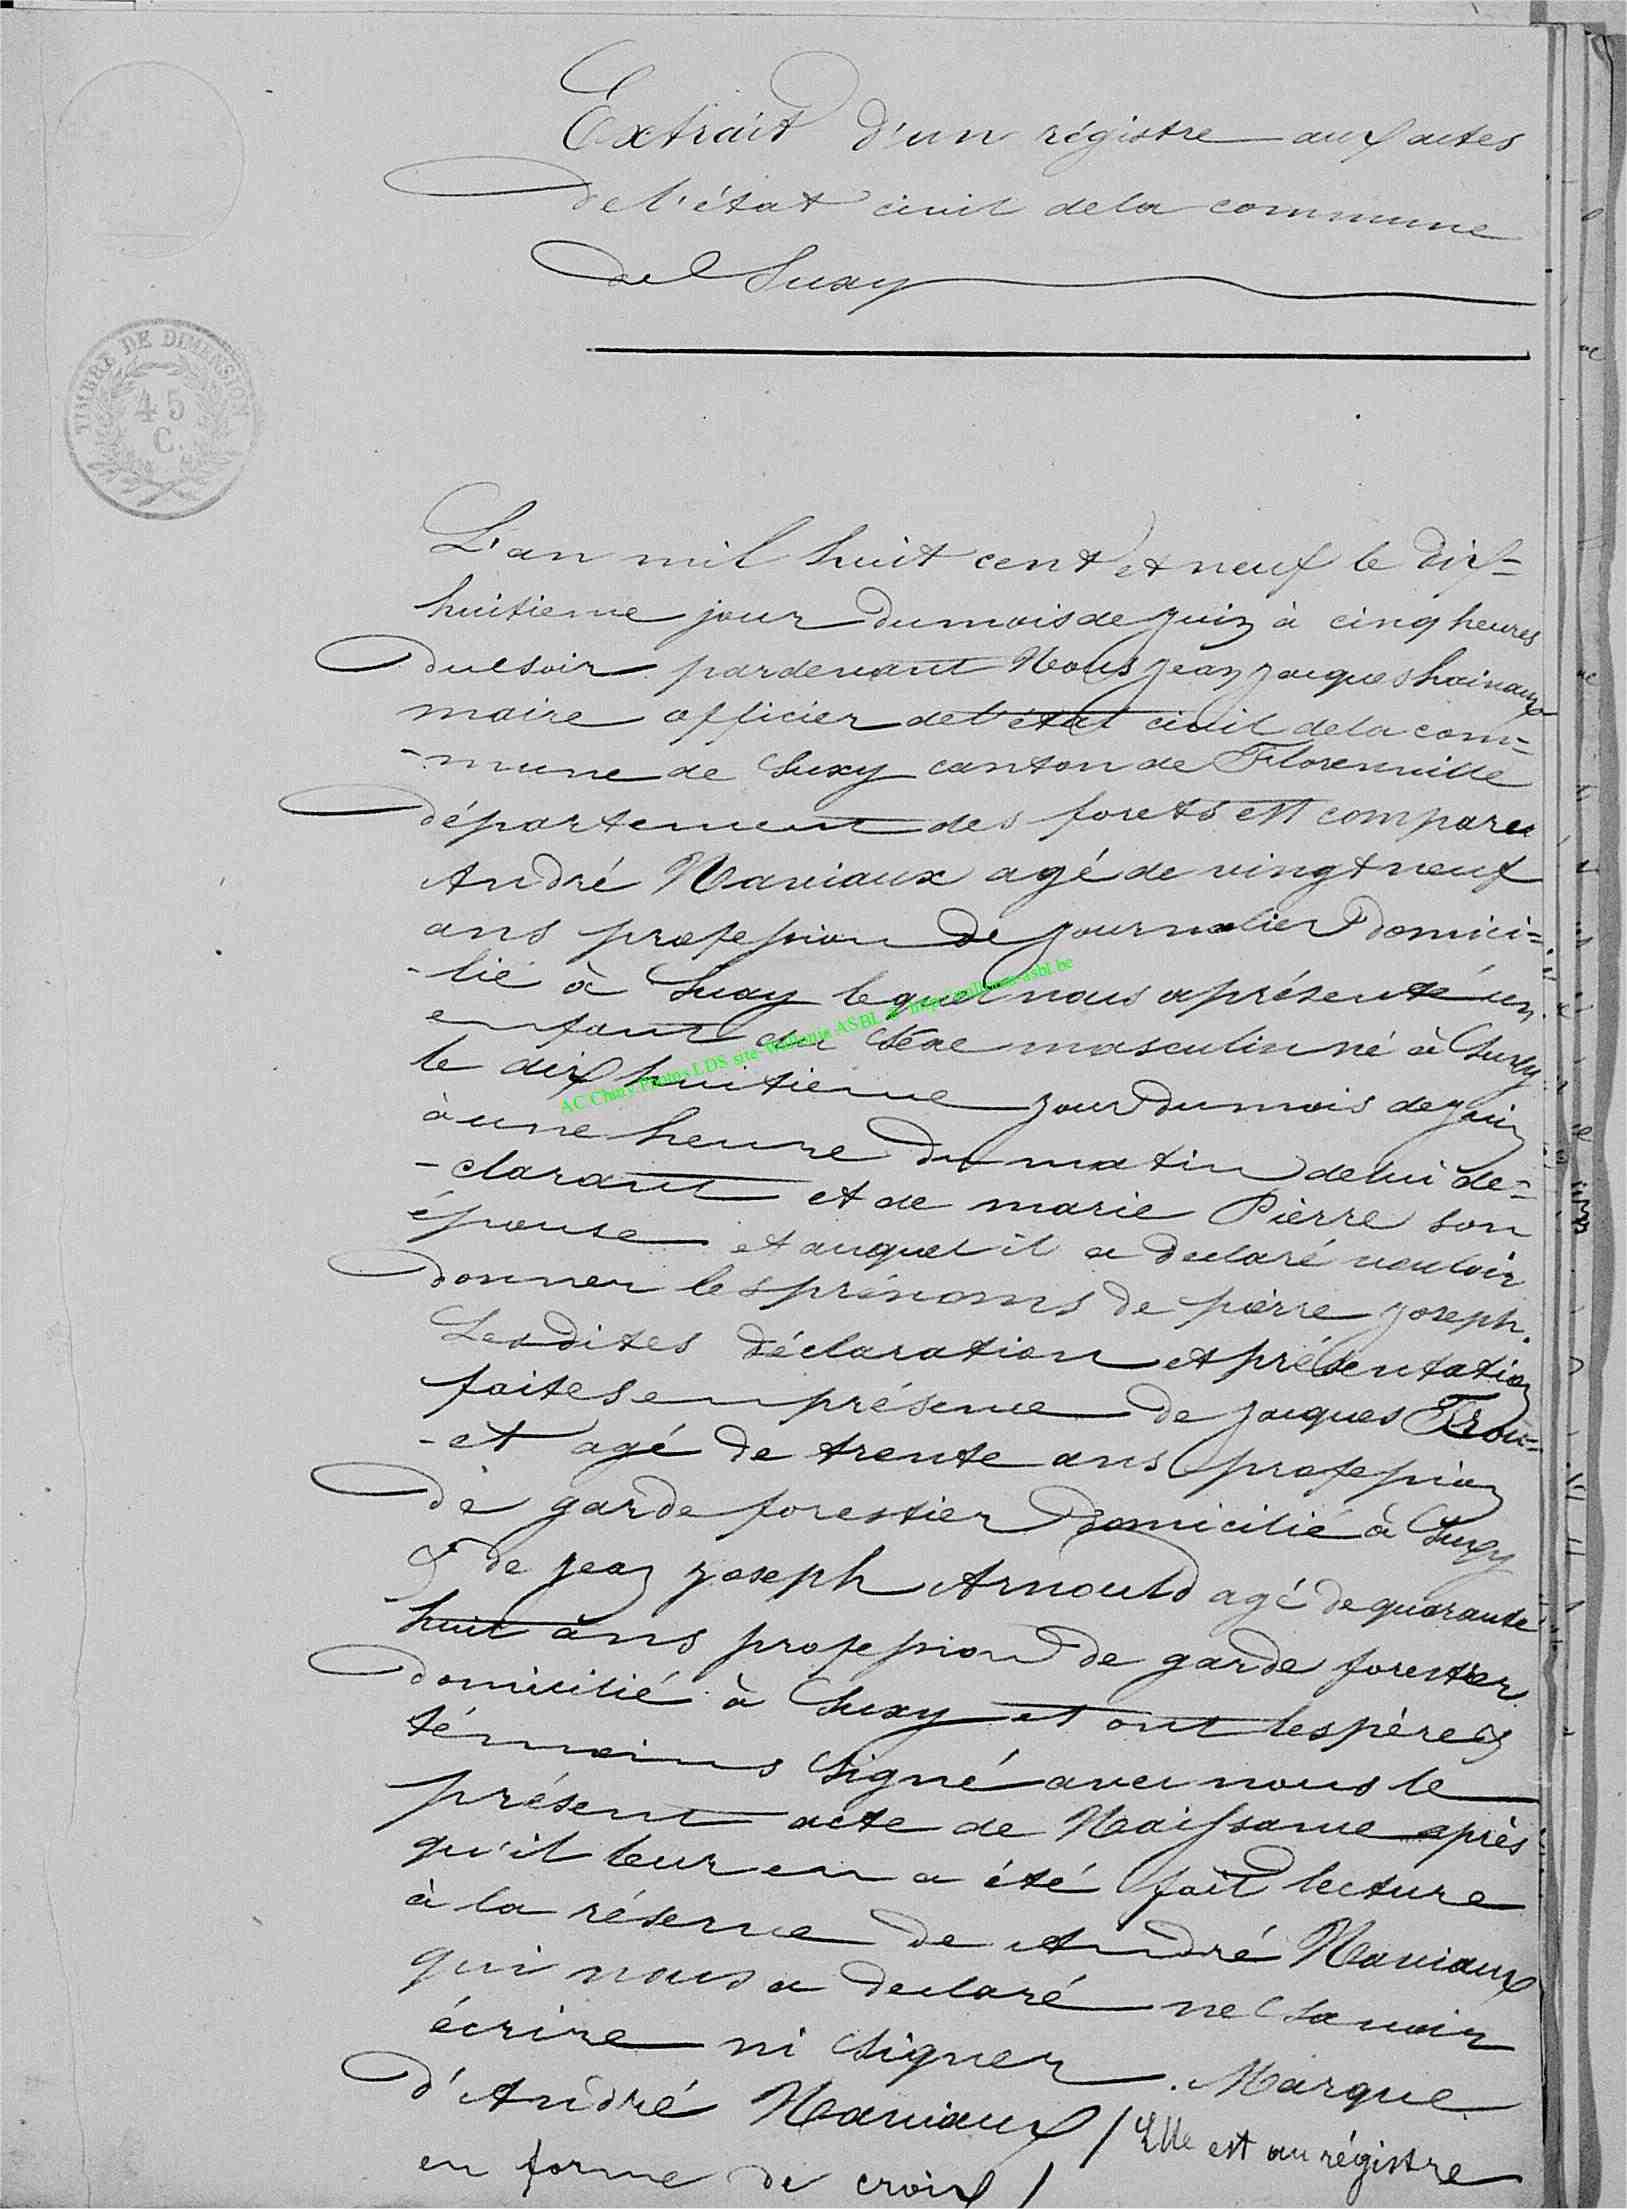 Extrait d'un régistre aux actes
de l'état civil de la commune
de Suxy
TIMBRE DE DIMENSION
45
C.
L'an mil huit cent et neuf le dix=
huitieme jour du mois de juin à cinq heures
du soir pardevant Nous jean jacques hainaux
maire officier de l'état civil de la com=
-mune de Suxy canton de Florenville
département des forets est comparu
André Naviaux agé de vingt neuf
ans profession de journalier domici=
-lié à Suxy lequel nous a présenté un
enfant du sexe masculin né à Suxy
le dix huitieme jour du mois de juin
à une heure du matin de lui de=
-clarant et de marie Pierre son
épouse et auquel il a declaré vouloir
donner les prénoms de pierre joseph.
Lesdites déclaration et présentation
faites en présence de jacques Trou=
-et agé de trente ans profession
de garde forestier domicilié à Suxy
& de jean joseph Arnould agé de quarante
-huit ans profession de garde forestier
domicilié à Suxy et ont les père &
témoins signé avec nous le
présent acte de Naissance après
qu'il leur en a été fait lecture
à la réserve de André Naviaux
qui nous a declaré ne savoir
écrire ni signer. Marque
d'André Naviaux / Elle est au régistre
en forme de croix /
AC Chiny Photos LDS site Wallonia ASBL